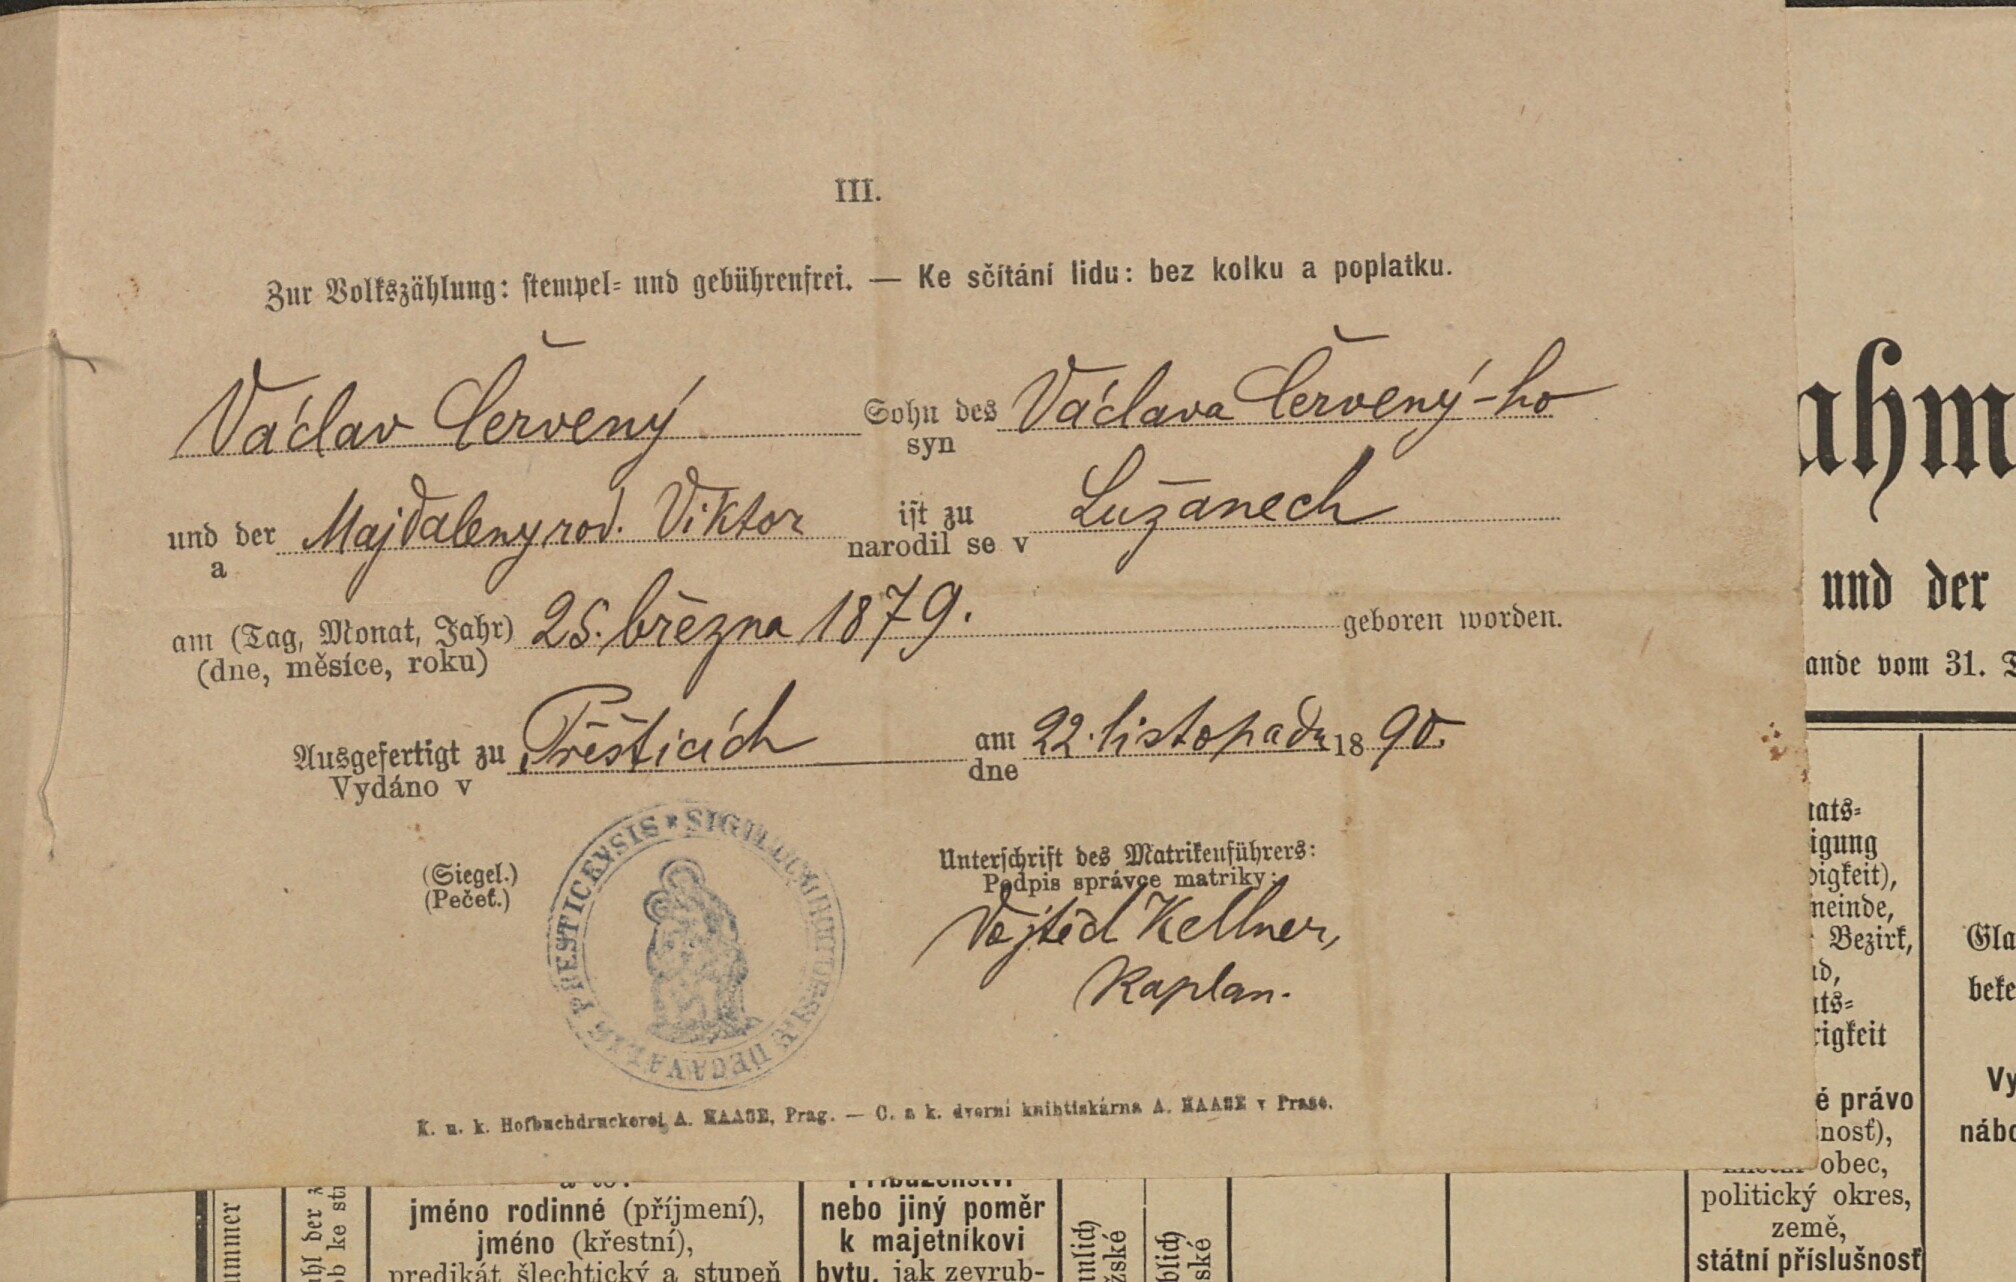 III.
Zur Volkszählung: stempel- und gebührenfrei. — Ke sčítání lidu: bez kolku a poplatku.
Václav Červený Sohn des Václava Červený-ho
syn
und der Majdaleny rod. Viktor ist zu Lužanech
a narodil se v
am (Tag, Monat, Jahr) 25. března 1879. geboren worden.
(dne, měsíce, roku)
Ausgefertigt zu Přešticích am 22. listopadu 1890.
Vydáno v dne
(Siegel.)
(Pečeť.)
SIGILLUM DECANALIS PRESTICENSIS
Unterschrift des Matrikenführers:
Podpis správce matriky:
Vojtěch Kellner,
Kaplan.
K. u. k. Hofbuchdruckerei A. HAASE, Prag. — C. a k. dvorní knihtiskárna A. HAASE v Praze.
ahm
und der
ande vom 31.
ats-
igung
igkeit),
meinde,
Bezirk,
nd,
ats-
rigkeit
é právo
nosť),
obec,
politický okres,
země,
státní příslušnosť
Gla
beke
Vy
nábo
ummer
ahl der
ob ke
a to:
jméno rodinné (příjmení),
jméno (křestní),
predikát šlechtický a stupeň
Příbuzenství
nebo jiný poměr
k majetníkovi
bytu, jak zevrub-
nnlich
žské
blich
ské